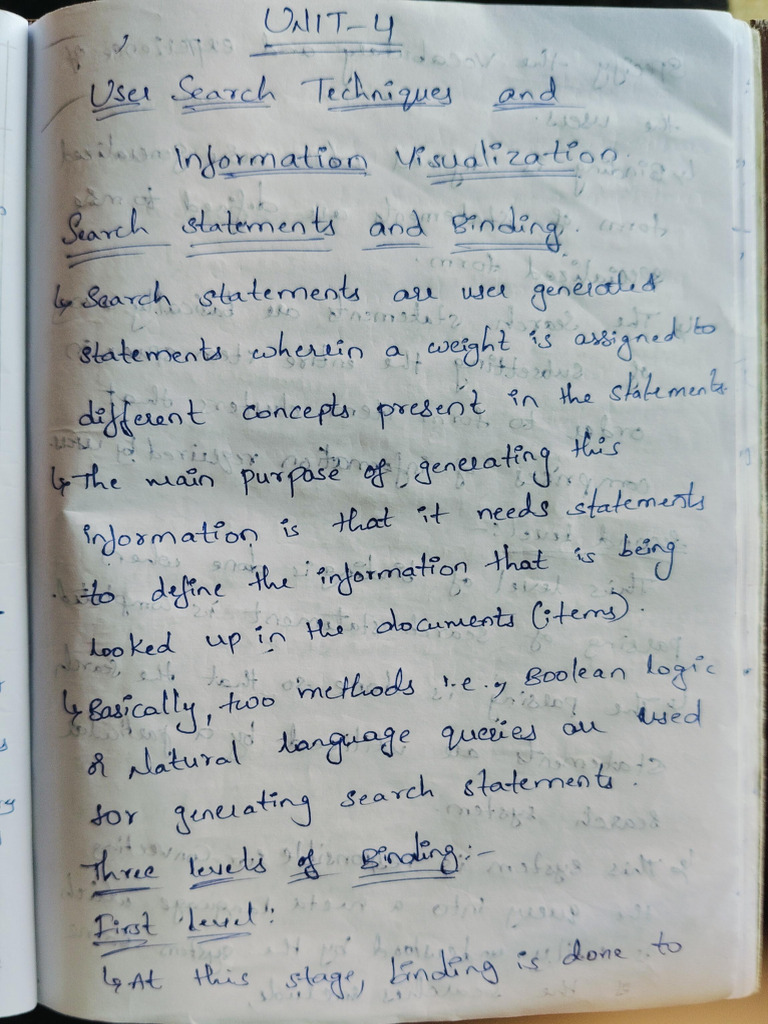 UNIT-4
User Search Techniques and
Information Visualization
Search statements and Binding.
↳ Search statements are user generated
statements wherein a weight is assigned to
different concepts present in the statements
↳ The main purpose of generating this
information is that it needs statements
to define the information that is being
looked up in the documents (items).
↳ Basically, two methods i.e., Boolean logic
& Natural language queries are used
for generating search statements.
Three levels of Binding:-
First Level:
↳ At this stage, binding is done to